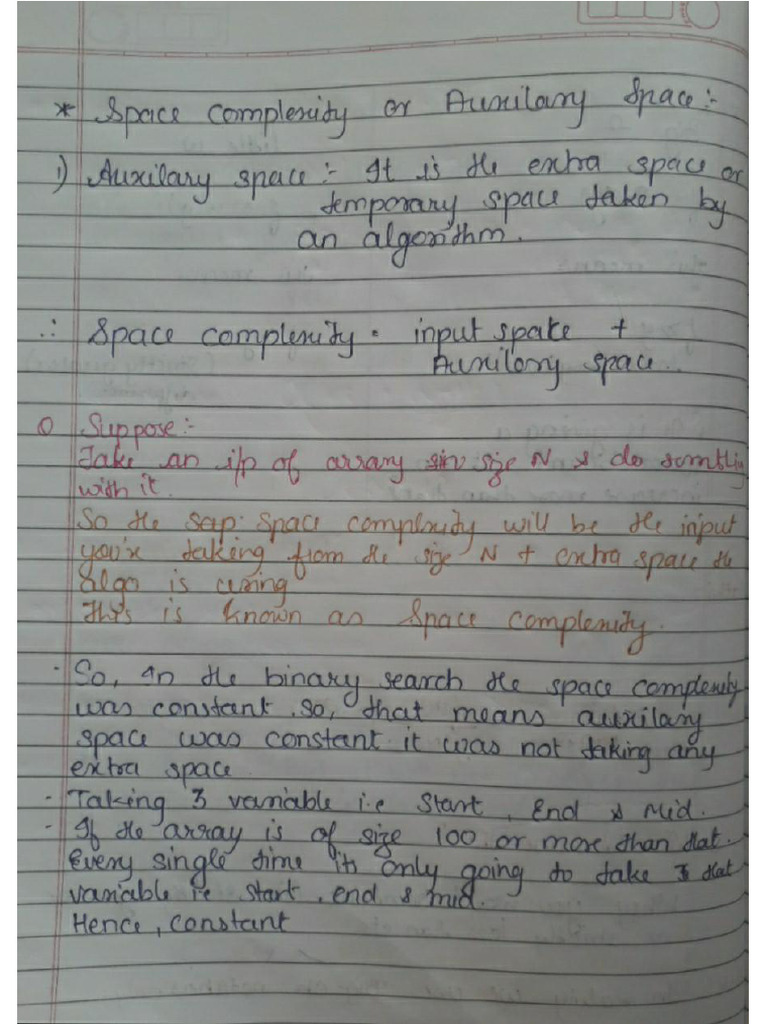 * Space complexity or Auxilary Space :-
1) Auxilary space :- It is the extra space or
temporary space taken by
an algorithm.
∴ Space complexity = input space +
Auxilary space.
Suppose :-
Take an i/p of arrary siz size N & do somthing
with it.
So the sap. space complexity will be the input
you'r taking from the size N + extra space the
algo is using
This is known as Space complexity.
· So, In the binary search the space complexity
was constant. so, that means auxilary
space was constant it was not taking any
extra space
- Taking 3 variable i.e Start, End & Mid.
- If the array is of size 100 or more than that.
Every single time its only going to take 3 that
variable i.e start, end & mid.
Hence, constant